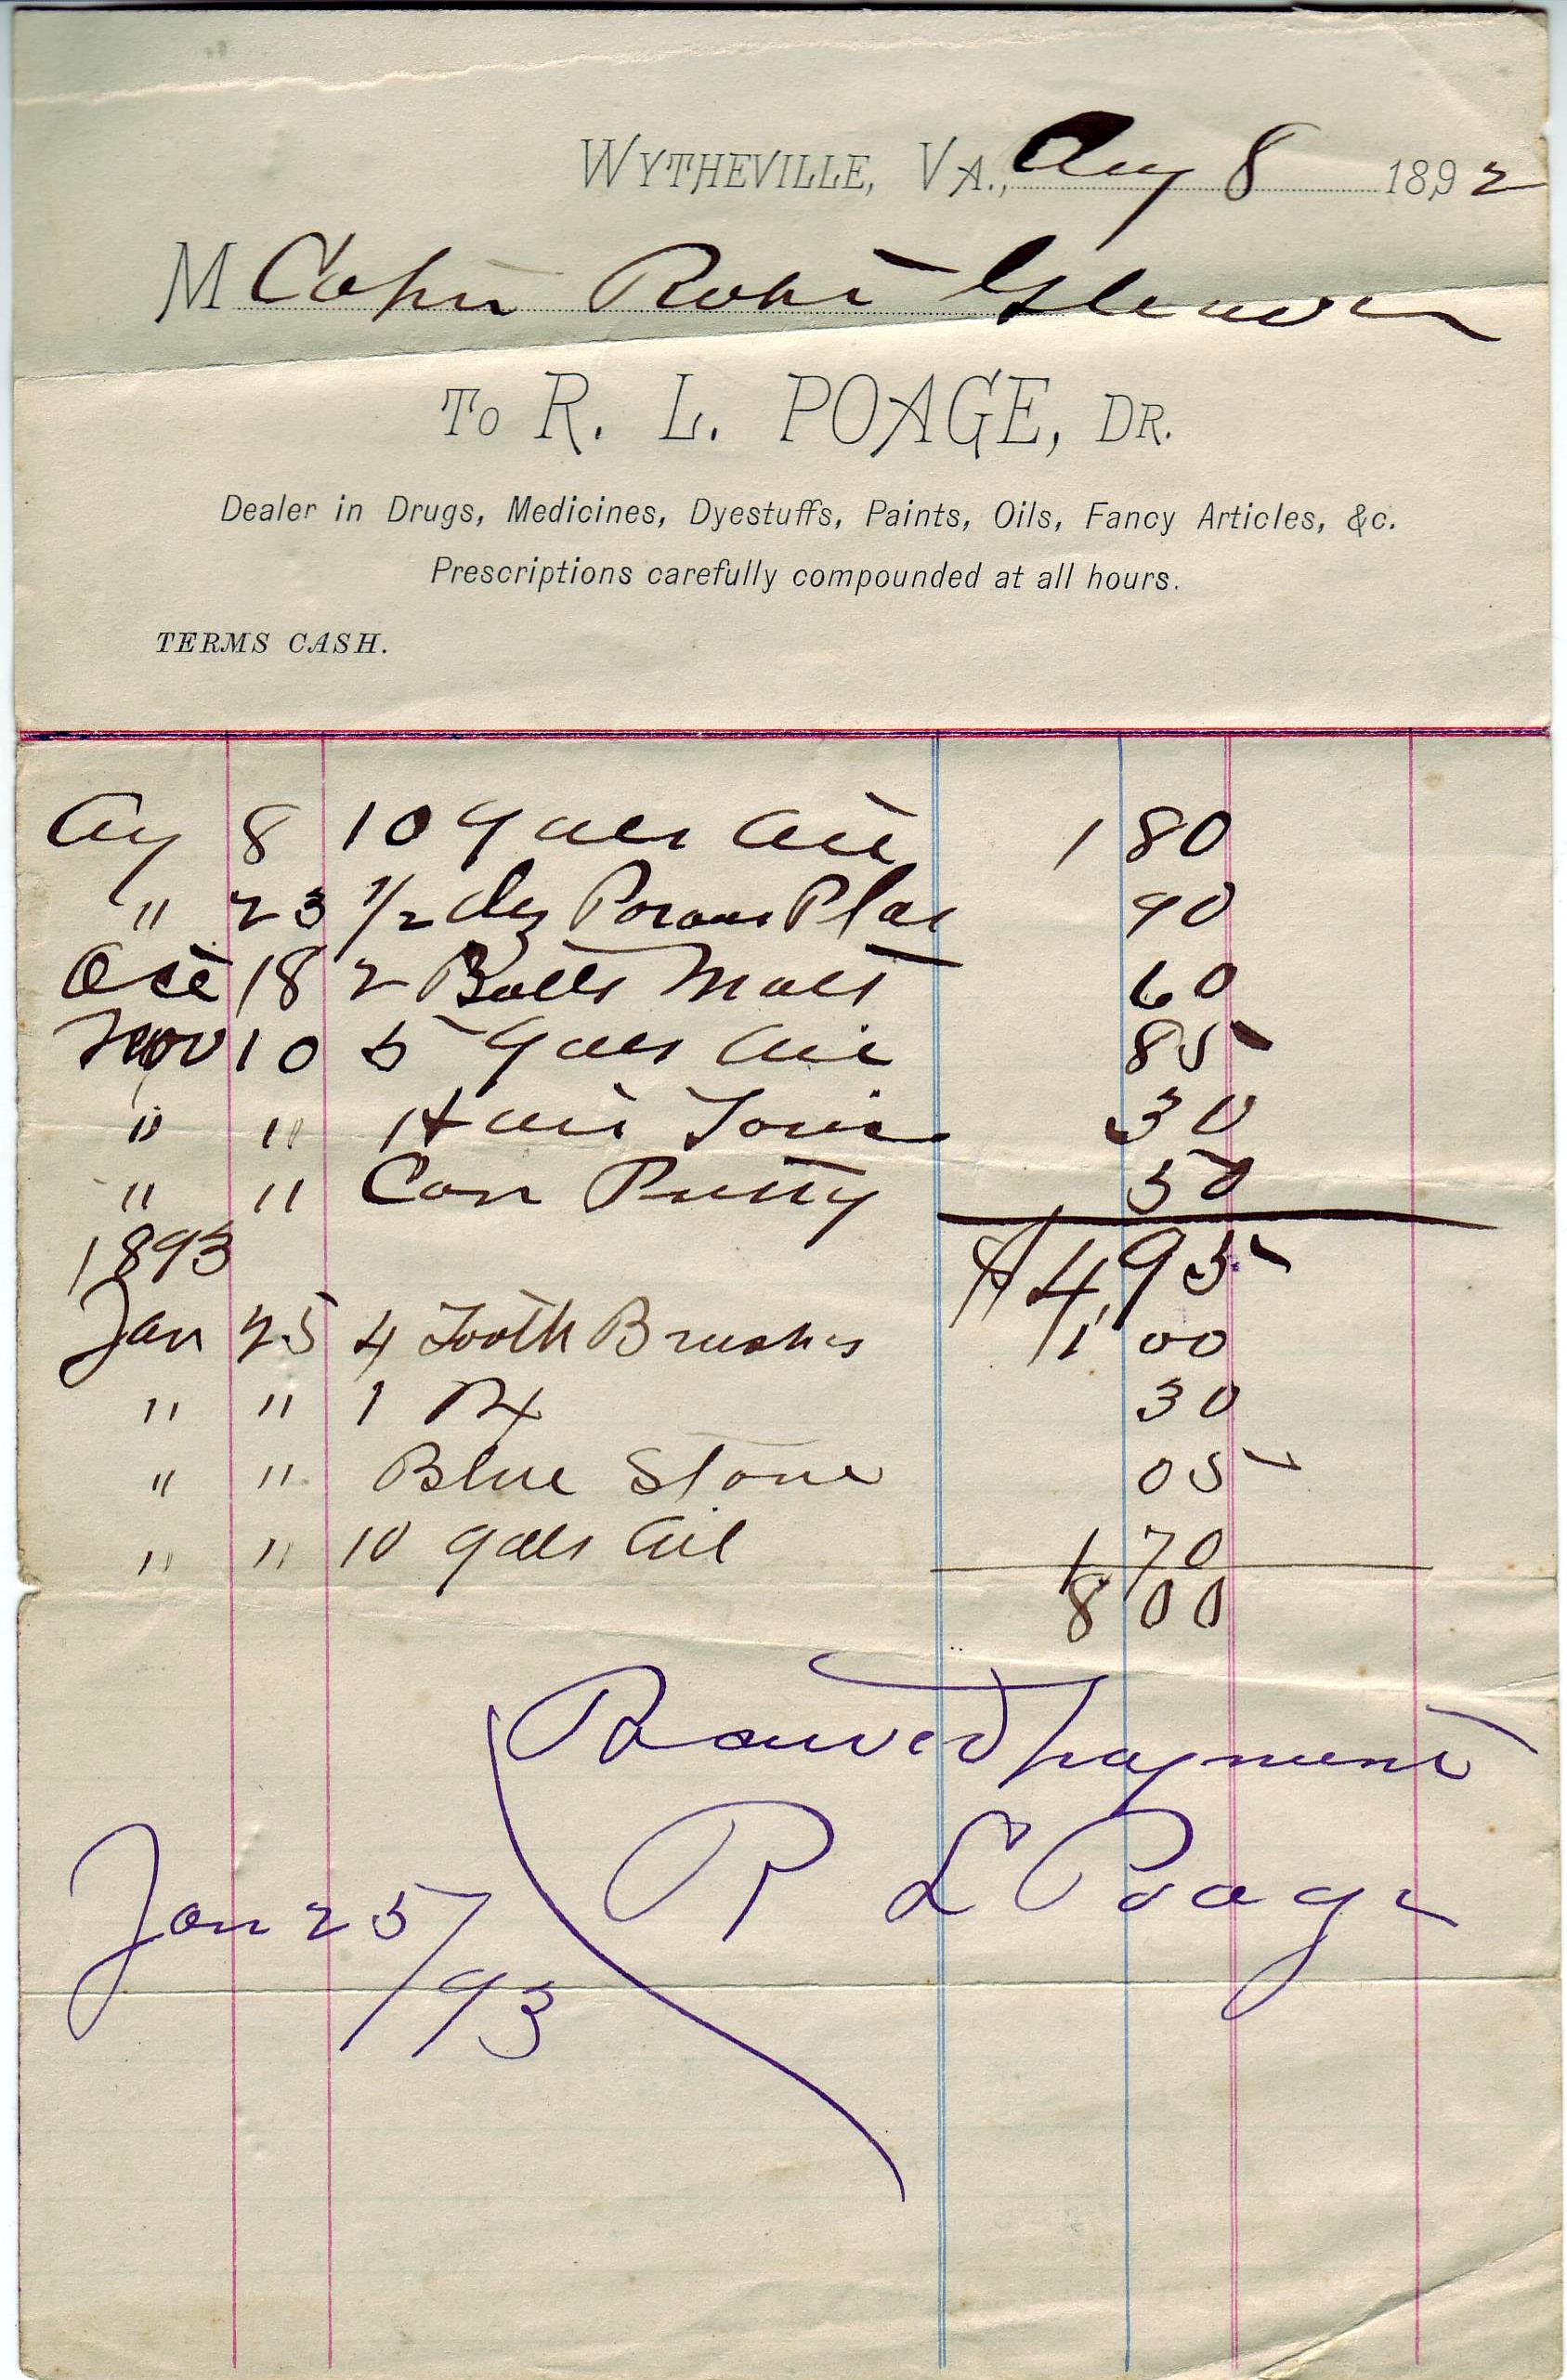 WYTHEVILLE, VA., Aug 8 1892
M Capn Robt Gleaves
To R. L. POAGE, DR.
Dealer in Drugs, Medicines, Dyestuffs, Paints, Oils, Fancy Articles, &c.
Prescriptions carefully compounded at all hours.
TERMS CASH.
Aug 8 10 Gals Oil 1 80
" 23 1/2 dz Porous Plas 90
Oct 18 2 Botts Malt 60
Nov 10 5 Gals Oil 85
" " Hair Tonic 30
" " Can Putty 50
1893 $4,95
Jan 25 4 Tooth Brushes 1 00
" " 1 Rx 30
" " Blue Stone 05
" " 10 gals Oil 1 70
8 00
Received payment
R L Poage
Jan 25/93